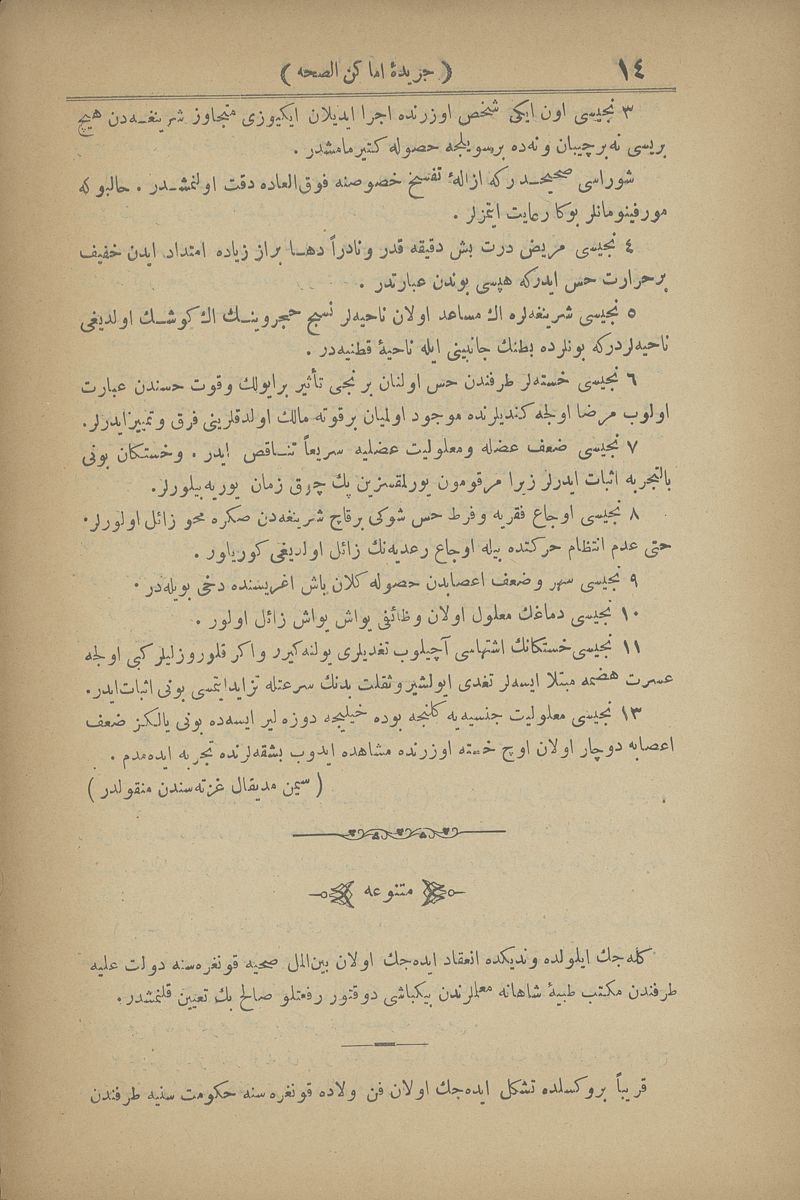 ١٤
( جريدهٔ اماكن الصحه )
٣ نجيسی اون ايكی شخص اوزرنده اجرا ايديلان ايكيوزی متجاوز شرينغه‌دن هيچ
بريسی نه برچيبان ونه‌ده برسويلجه حصوله كتيرمامشدر .
شوراسی صحيحدركه ازالهٔ تفسخ خصوصنه فوق‌العاده دقت اولنمشدر . حالبوكه
مورفينومانلر بوكا رعايت ايتمزلر .
٤ نجيسی مريض درت بش دقيقه قدر ونادراً دها براز زياده امتداد ايدن خفيف
برحرارت حس ايدركه هپسی بوندن عبارتدر .
٥ نجيسی شرينغه‌لره اك مساعد اولان ناحيه‌لر نسج حجروينك اك كوشك اولديغی
ناحيه‌لردركه بونلرده بطنك جانبينی ايله ناحيهٔ قطنيه‌در .
٦ نجيسی خسته‌لر طرفندن حس اولنان برنجی تأثير برايولك وقوت حسندن عبارت
اولوب مرضا اولجه كنديلرنده موجود اولميان برقوته مالك اولدقلرينی فرق وتمييزايدرلر.
٧ نجيسی ضعف عضله ومعلوليت عضليه سريعاً تناقص ايدر . وخستكان بونی
بالتجربه اثبات ايدرلر زيرا مرقومون يورلمقسزين پك چوق زمان يوريه‌بيلورلر.
٨ نجيسی اوجاع فقريه وفرط حس شوكی برقاچ شرينغه‌دن صكره محو زائل اولورلر.
حتی عدم انتظام حركتده بيله اوجاع رعديه‌نك زائل اولديغی كوريلور .
٩ نجيسی سهر وضعف اعصابدن حصوله كلان باش اغريسنده دخی بويله‌در .
١٠ نجيسی دماغك معلول اولان وظائفی يواش يواش زائل اولور .
١١ نجيسی خستكانك اشتهاسی آچيلوب تغديلری يولنه‌كيرر واكر قلوروزليلركبی اولجه
عسرت هضمه مبتلا ايسه‌لر تغدی ايولشير وثقلت بدنك سرعتله تزايدايتمسی بونی اثبات‌ايدر.
١٣ نجيسی معلوليت جنسيه‌يه كلنجه بوده خيليجه دوزه‌لير ايسه‌ده بونی يالكز ضعف
اعصابه دوچار اولان اوچ خسته اوزرنده مشاهده ايدوب بشقه‌لرنده تجربه ايده‌مدم .
( سيمن مديقال غزته‌سندن منقولدر )
متنوعه
كله‌جك ايلولده ونديكده انعقاد ايده‌جك اولان بين‌الملل صحيه قونغره‌سنه دولت عليه
طرفندن مكتب طبيهٔ شاهانه معلملرندن بيكباشی دوقتور رفعتلو صالح بك تعيين قلنمشدر.
قريباً بروكسلده تشكل ايده‌جك اولان فن ولاده قونغره‌سنه حكومت سنيه طرفندن